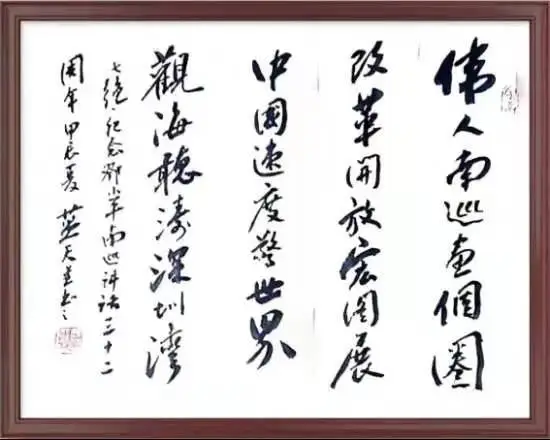 偉人南巡畫個圈
改革開放宏圖展
中國速度驚世界
觀海聽濤深圳灣
七絕·紀念鄧小平南巡講話三十二
周年甲辰夏